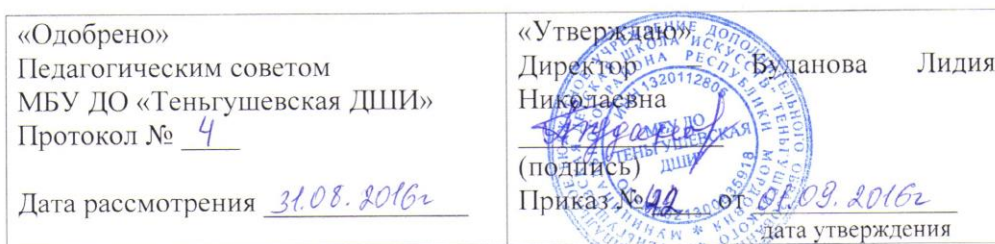 «Одобрено»
Педагогическим советом
МБУ ДО «Теньгушевская ДШИ»
Протокол № 4
Дата рассмотрения 31.08.2016г
«Утверждаю»
Директор Буданова Лидия
Николаевна
(подпись)
Приказ № 22 от 01.09.2016г
дата утверждения
МБУ ДО
ТЕНЬГУШЕВСКАЯ
ДШИ